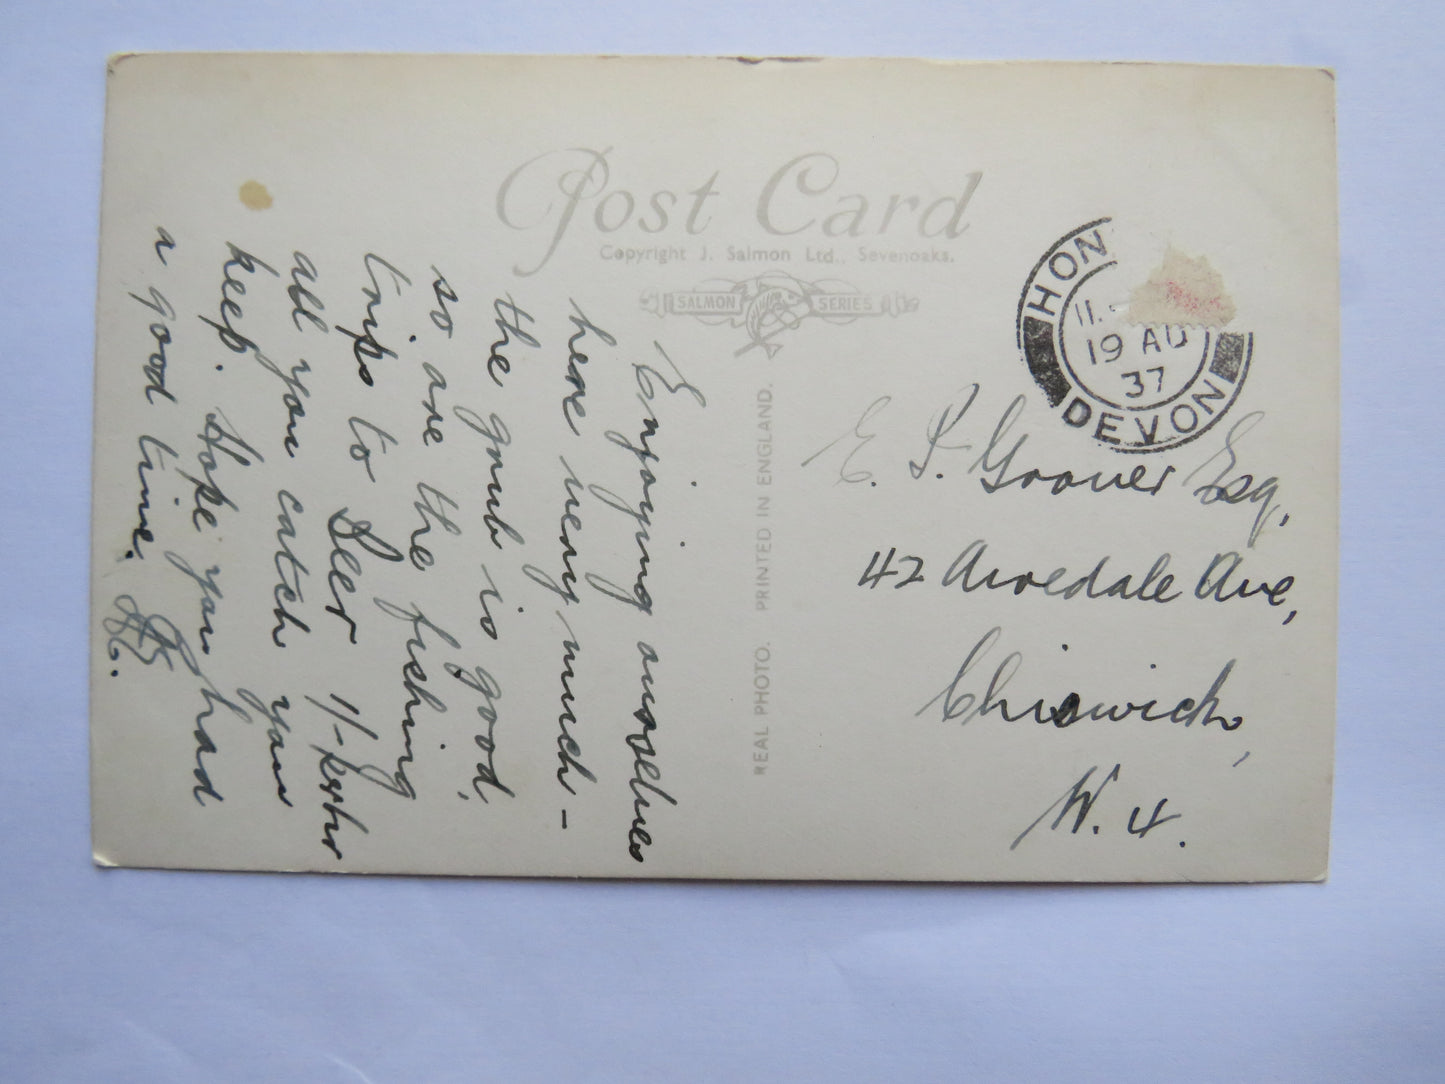 Post Card
Copyright J. Salmon Ltd., Sevenoaks.
SALMON SERIES
REAL PHOTO. PRINTED IN ENGLAND.
HON
11.
19 AU
37
DEVON
E. P. Groover Esq,
42 Airedale Ave,
Chiswick,
W. 4.
Enjoying ourselves
here very much –
the grub is good,
so are the fishing
trips to Beer 1/- per hr
all you catch you
keep. Hope you had
a good time.